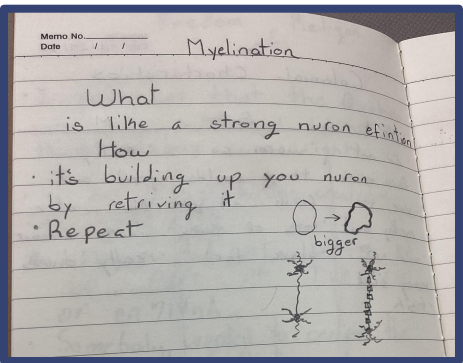 Memo No.
Date / /
Myelination
What
is like a strong nuron efintion
How
· it's building up you nuron
by retriving it
bigger
· Repeat